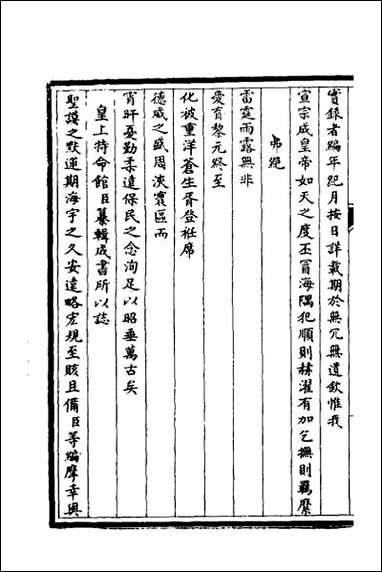 實錄者編年紀月按日詳載期於無冗無遺欽惟我
宣宗成皇帝如天之度丕冐海隅犯順則赫濯有加乞撫則羈縻
弗絕
雷霆雨露無非
愛育黎元終至
化被重洋蒼生胥登衽席
德威之盛周浹寰區而
宵旰憂勤柔遠保民之念洵足以昭垂萬古矣
皇上特命館臣纂輯成書所以誌
聖謨之默運期海宇之久安遠略宏規至賅且備臣等編摩幸與